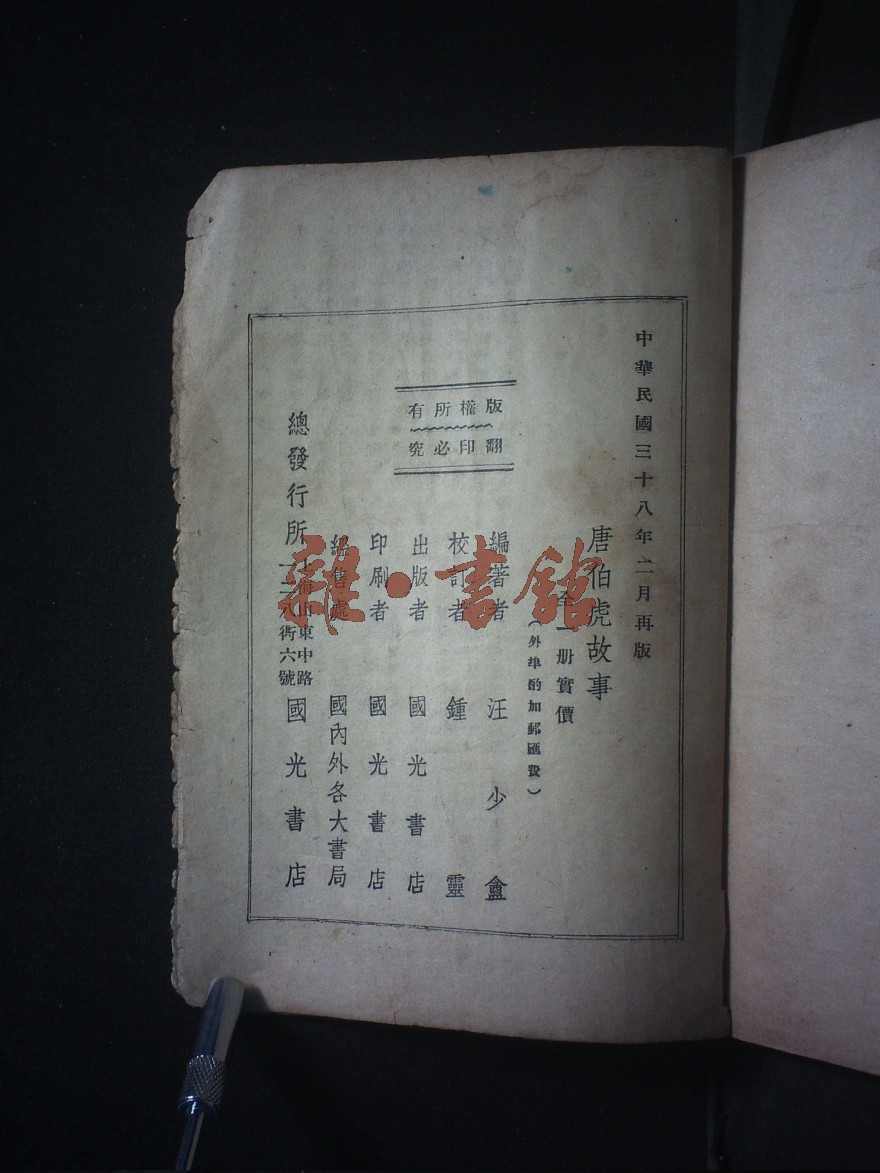 中華民國三十八年二月再版
唐伯虎故事
全一册實價
(外埠酌加郵匯費)
版權所有
翻印必究
編著者 汪少盦
校訂者 鍾靈
出版者 國光書店
印刷者 國光書店
經售處 國內外各大書局
總發行所 上海山東中路一二八衖六號 國光書店
雜·書館